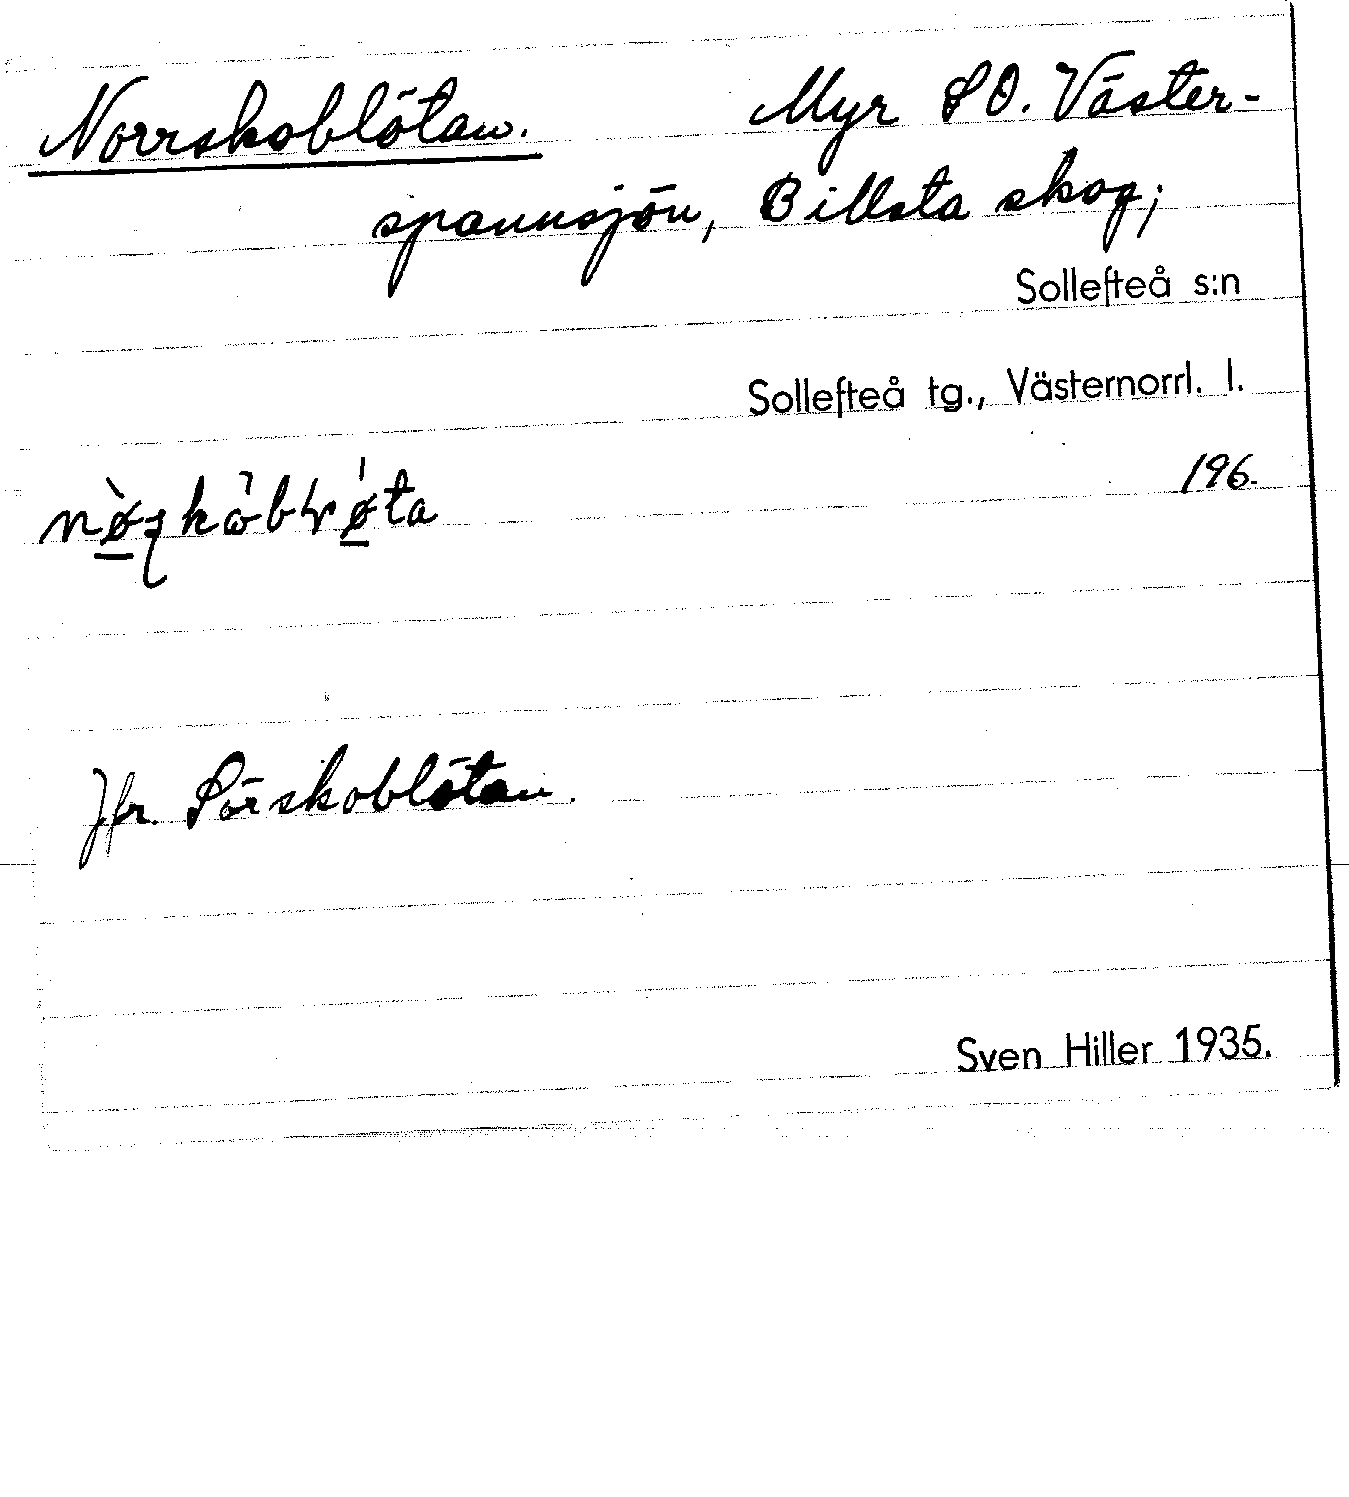 Norrskoblötan. Myr SO. Väster-
spannsjön, Billsta skog;
Sollefteå s:n
Sollefteå tg., Västernorrl. l.
196.
Jfr. Sörskoblötan.
Sven Hiller 1935.